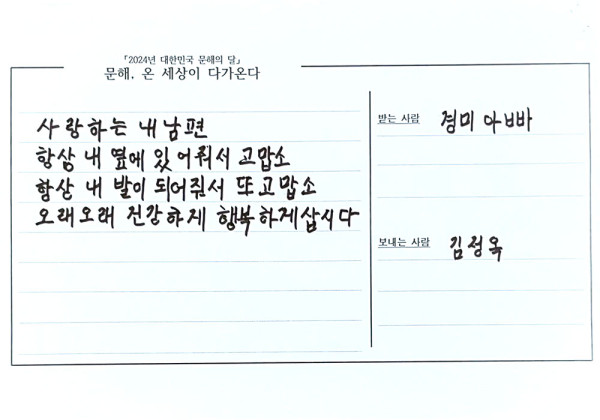 「2024년 대한민국 문해의 달」
문해, 온 세상이 다가온다
사랑하는 내남편
항삼 내 옆에 있어줘서 고맙소
항상 내 발이 되어줘서 또고맙소
오래오래 건강하게 행복하게삽시다
받는 사람 경미아빠
보내는 사람 김정옥